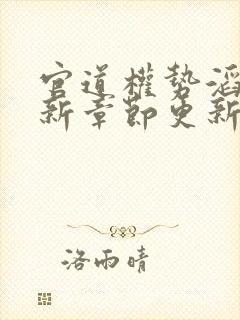 官道權勢滔
新章節更新
洛雨晴